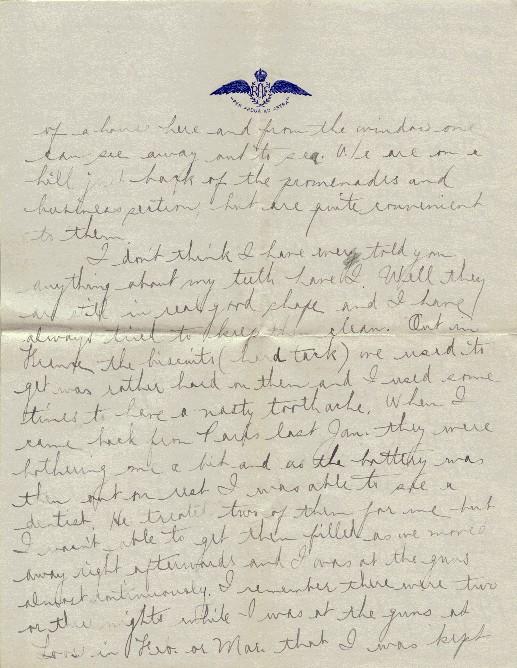 RAF
PER ARDUA AD ASTRA
of a house here and from the window one
can see away out to sea. We are on a
hill just back of the promenades and
business section, but are quite convenient
to them.
I don't think I have ever told you
anything about my teeth have I. Well they
are still in real good shape and I have
always tried to keep them clean. Out in
France the biscuits (hard tack) we used to
get was rather hard on them and I used some-
times to have a nasty toothache. When I
came back from Paris last Jan. they were
bothering me a bit and as the battery was
then out on rest I was able to see a
dentist. He treated two of them for me but
I wasn't able to get them filled as we moved
away right afterwards and I was at the guns
almost continuously. I remember there were two
or three nights while I was at the guns at
Loos in Feb. or Mar. that I was kept